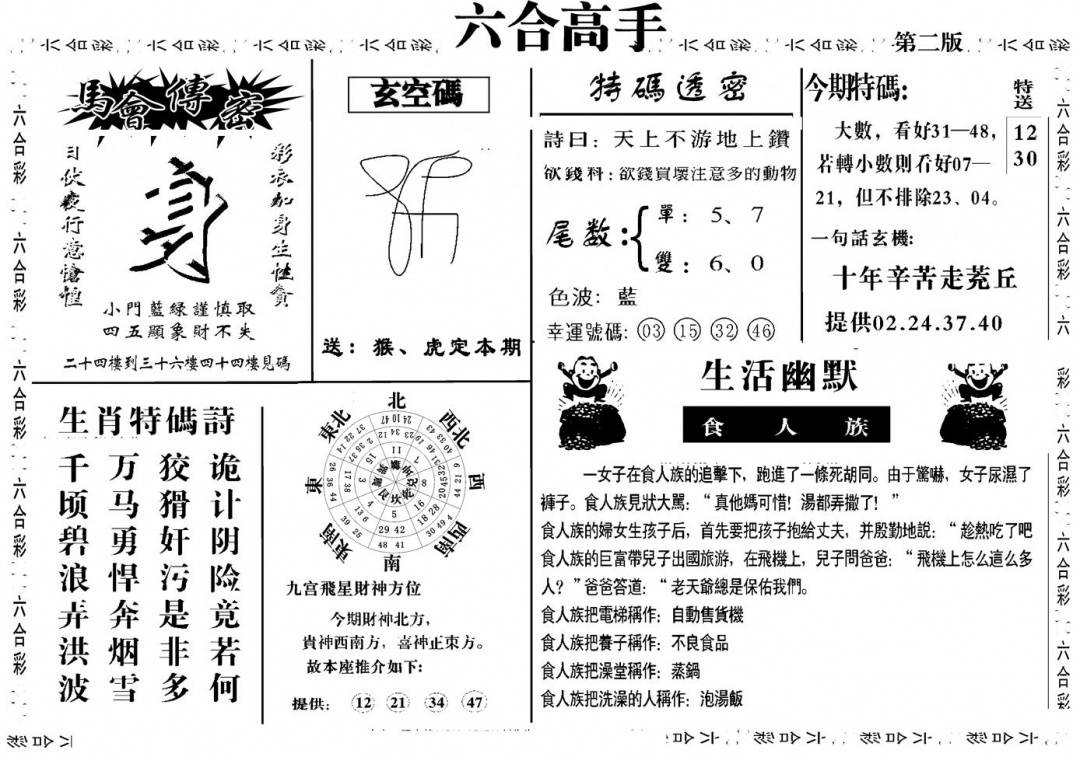 六合高手
第二版
馬會傳密
日伏夜行意愴惶
彩衣加身生性貴
小門藍緑謹慎取
四五顯象財不失
二十四樓到三十六樓四十四樓見碼
玄空碼
送：猴、虎定本期
特碼透密
詩曰：天上不游地上鑽
欲錢料：欲錢買壞注意多的動物
尾数：
單：5、7
雙：6、0
色波：藍
幸運號碼：03 15 32 46
今期特碼：
特送
12
30
大數，看好31—48，
若轉小數則看好07—
21，但不排除23、04。
一句話玄機：
十年辛苦走茺丘
提供02.24.37.40
生肖特碼詩
诡计阴险竟若何
狡猾奸污是非多
万马勇悍奔烟雪
千顷碧浪弄洪波
北
西北
西
西南
南
東南
東
東北
九宫飛星財神方位
今期財神北方，
貴神西南方，喜神正東方。
故本座推介如下：
提供：12 21 34 47
生活幽默
食人族
一女子在食人族的追擊下，跑進了一條死胡同。由于驚嚇，女子尿濕了
褲子。食人族見狀大罵：“真他媽可惜！湯都弄撒了！”
食人族的婦女生孩子后，首先要把孩子抱給丈夫，并殷勤地説：“趁熱吃了吧
食人族的巨富帶兒子出國旅游，在飛機上，兒子問爸爸：“飛機上怎么這么多
人？”爸爸答道：“老天爺總是保佑我們。
食人族把電梯稱作：自動售貨機
食人族把養子稱作：不良食品
食人族把澡堂稱作：蒸鍋
食人族把洗澡的人稱作：泡湯飯